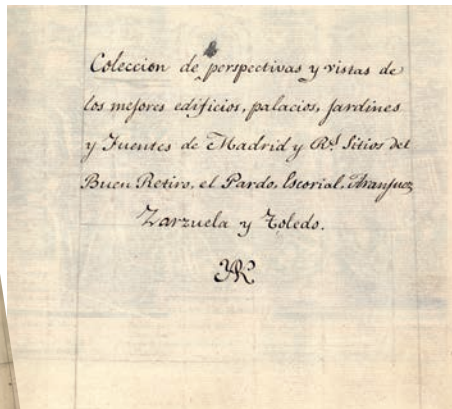 Coleccion de perspectivas y vistas de
los mejores edificios, palacios, jardines
y Fuentes de Madrid y R.s Sitios del
Buen Retiro, el Pardo, Escorial, Aranjuez
Zarzuela y Toledo.